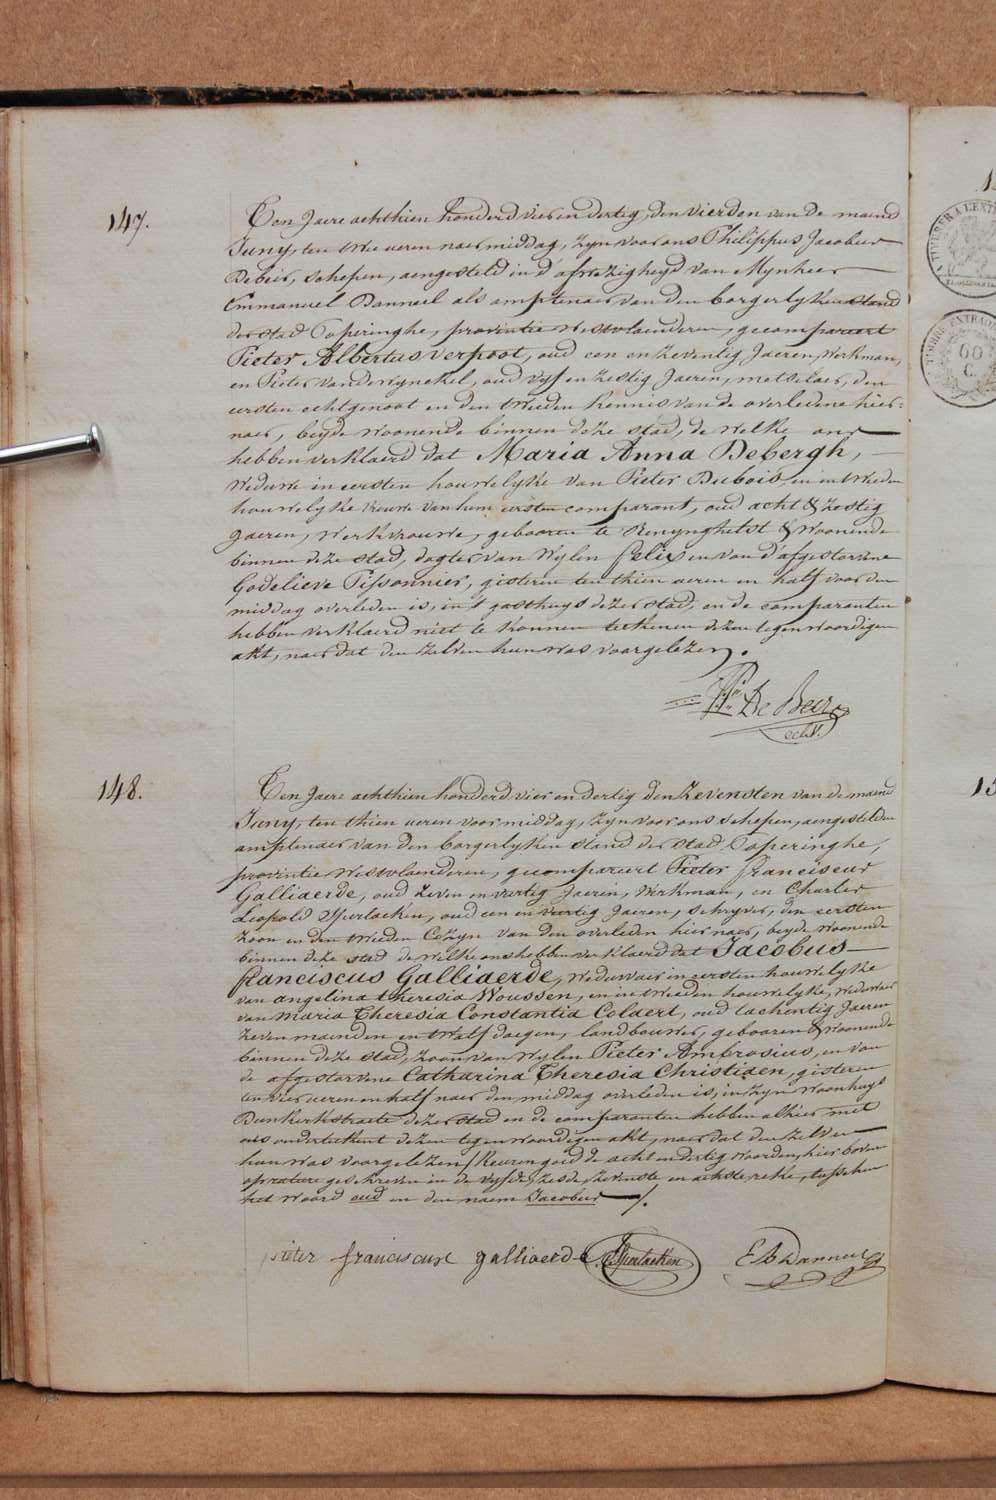 147.
Ten Jaere achthien honderd vier en dertig, den vierden van de maend
Juny, ten twee ueren naer middag, zyn voor ons Philippus Jacobus
Debeir, schepen, aengesteld in d'afwezigheyd van Mynheer
Emmanuel Danneel als amptenaer van den borgerlyken stand
der stad Poperinghe, provintie Westvlaenderen, gecompareert
Pieter Albertus Verpoot, oud een en zeventig Jaeren, Werkman,
en Pieter Vanderwynckel, oud vyf en zestig Jaeren, metselaer, den
eersten echtgenoot en den tweeden Kennis van de overledene hier-
naer, beyde woonende binnen deze stad, de welke ons
hebben verklaerd dat Maria Anna Debergh,
Weduwe in eersten houwelyke van Pieter Dubois en in tweeden
houwelyke vrouwe van hem eersten comparant, oud acht & zestig
Jaeren, Werkvrouwe, gebooren te Renynghelst & Woonende
binnen deze stad, dogter van Wylen Felix en van d'afgestorvene
Godelieve Pissonnier, gisteren ten thien ueren en half voor den
middag overleden is, in 't gasthuys dezer stad, en de comparanten
hebben verklaerd niet te konnen teekenen dezen tegenwoordigen
akt, naer dat den zelven hun was voorgelezen.
Ph. De Beir
sch.
148.
Ten Jaere achthien honderd vier en dertig den zevensten van de maend
Juny, ten thien ueren voormiddag, zyn voor ons schepen, aengestelden
amptenaer van den borgerlyken stand der stad Poperinghe,
provintie Westvlaenderen, gecompareert Pieter Franciscus
Galliaerde, oud zeven en veertig Jaeren, Werkman, en Charles
Leopold Sperlaeken, oud een en veertig Jaeren, schryver, den eersten
zoon en den tweeden Cozyn van den overleden hier naer, beyde woonende
binnen deze stad de welke ons hebben verklaerd dat Jacobus
Franciscus Galliaerde, Weduwaer in eersten houwelyke
van Angelina Theresia Woussen, en in tweeden houwelyke, Weduwaer
van Maria Theresia Constantia Colaert, oud tachentig Jaeren
zeven maenden en twalf daegen, landbouwer, gebooren & woonende
binnen deze stad, zoon van Wylen Pieter Ambrosius, en van
de afgestorvene Catharina Theresia Christiaen, gisteren
ten vier ueren en half naer den middag overleden is, in zyn woonhuys
Dunkerkstraete dezer stad en de comparanten hebben alhier met
ons onderteekent dezen tegenwoordigen akt, naer dat den zelven
hun was voorgelezen / Keuren goed de acht en dertig woorden, hier boven
op rature geschreven in de vyfde, zesde, zevenste en achtste reke, tusschen
het woord oud en den naem Jacobus /.
Pieter franciscus galliaerde Sperlaeken E A Danneel
60
C.
15